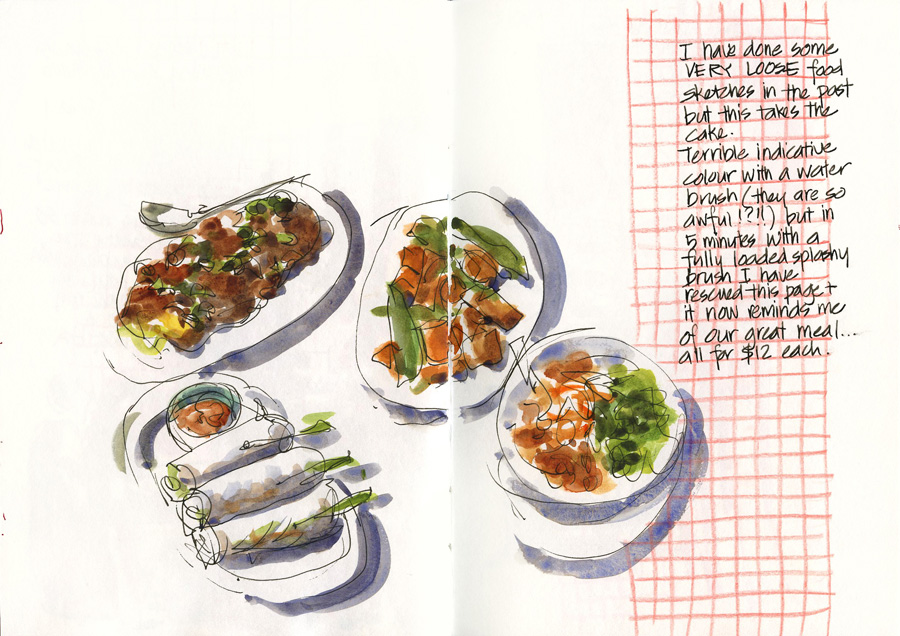 I have done some
VERY LOOSE food
sketches in the past
but this takes the
cake.
Terrible indicative
colour with a water
brush (they are so
awful!?!!) but in
5 minutes with a
fully loaded splashy
brush I have
rescued this page +
it now reminds me
of our great meal...
all for $12 each.